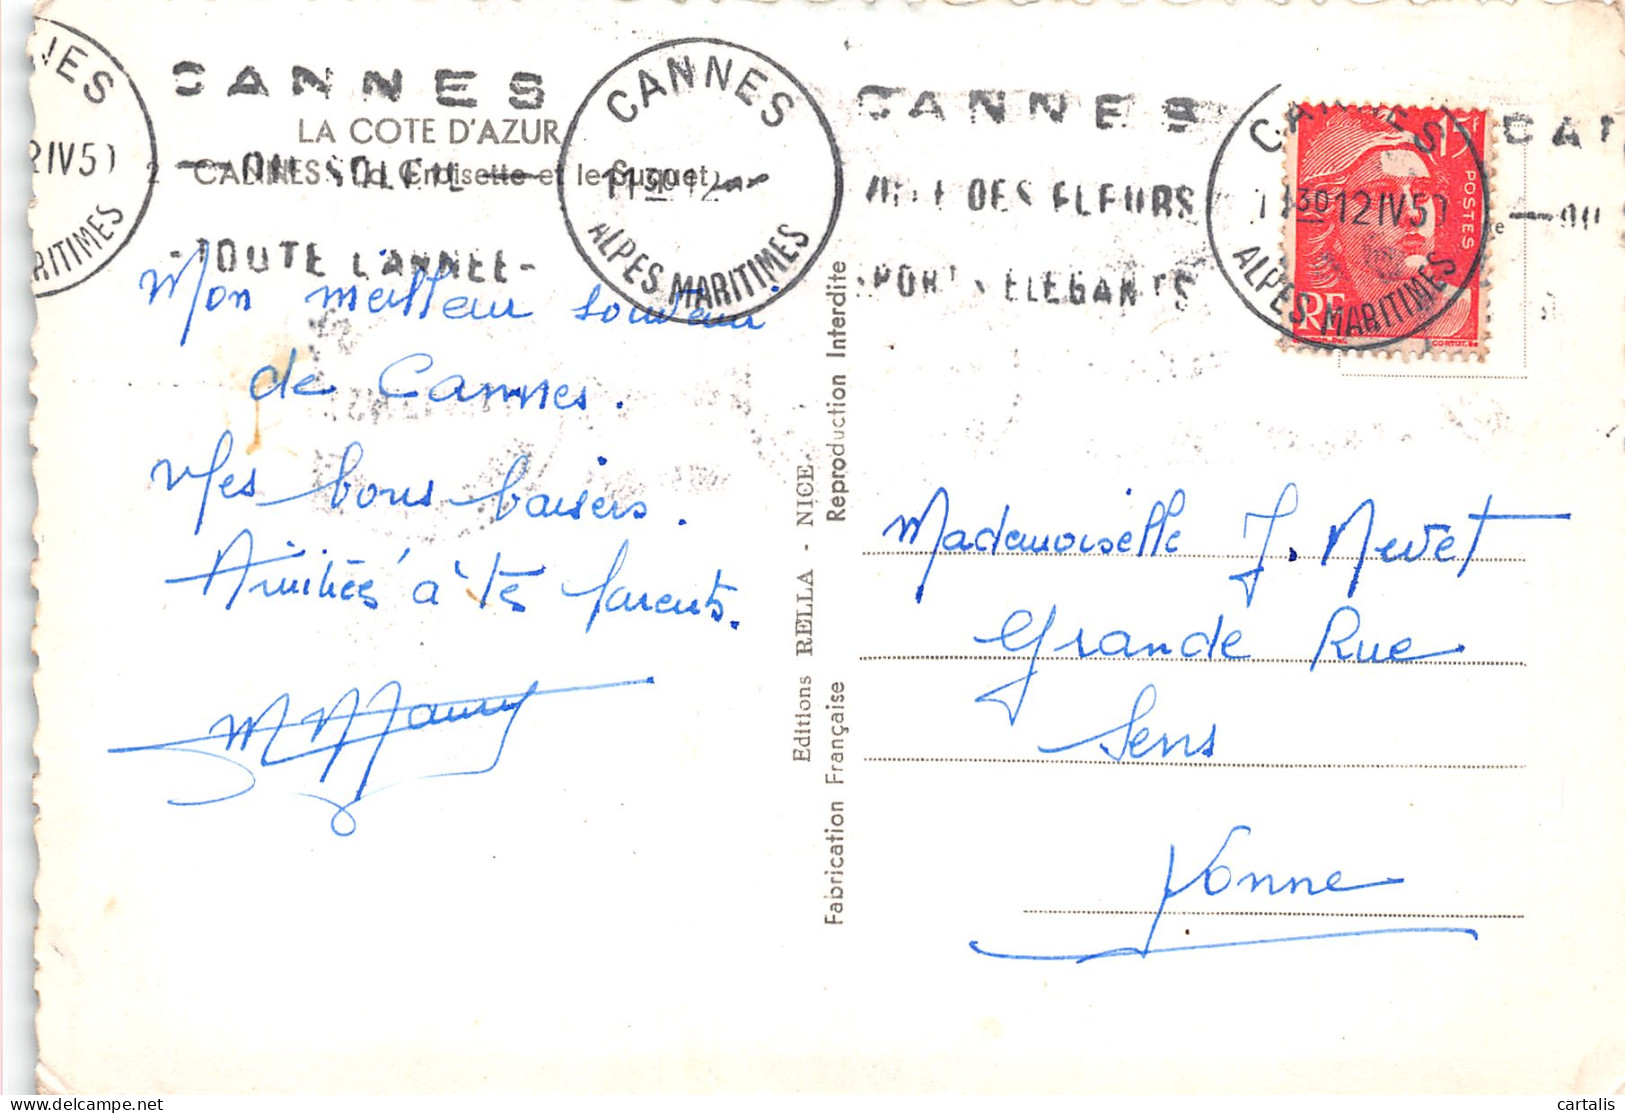 CANNES
DU SOLEIL
-TOUTE L'ANNEE-
CANNES
ALPES MARITIMES
CANNES
VILLE DES FLEURS
SPORTS ELEGANTS
CANNES
1130 12 IV 50
ALPES MARITIMES
NES
2 IV 50
RITIMES
CAN
LA COTE D'AZUR
2 CANNES. - La Croisette et le Suquet
15F
POSTES
RF
Mon meilleur souvenir
de Cannes.
Mes bons baisers.
Amitiés à tes parents.
Editions RELLA - NICE.
Fabrication Française
Reproduction Interdite
Mademoiselle J. Nevet
Grande Rue
Sens
Yonne
cartalis